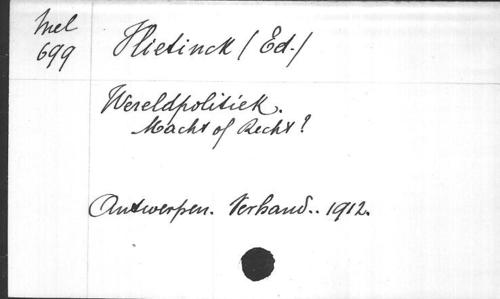 Mel
699
Hietinck (Ed.)
Wereldpolitiek.
Macht of Recht?
Antwerpen. Verband.. 1912.